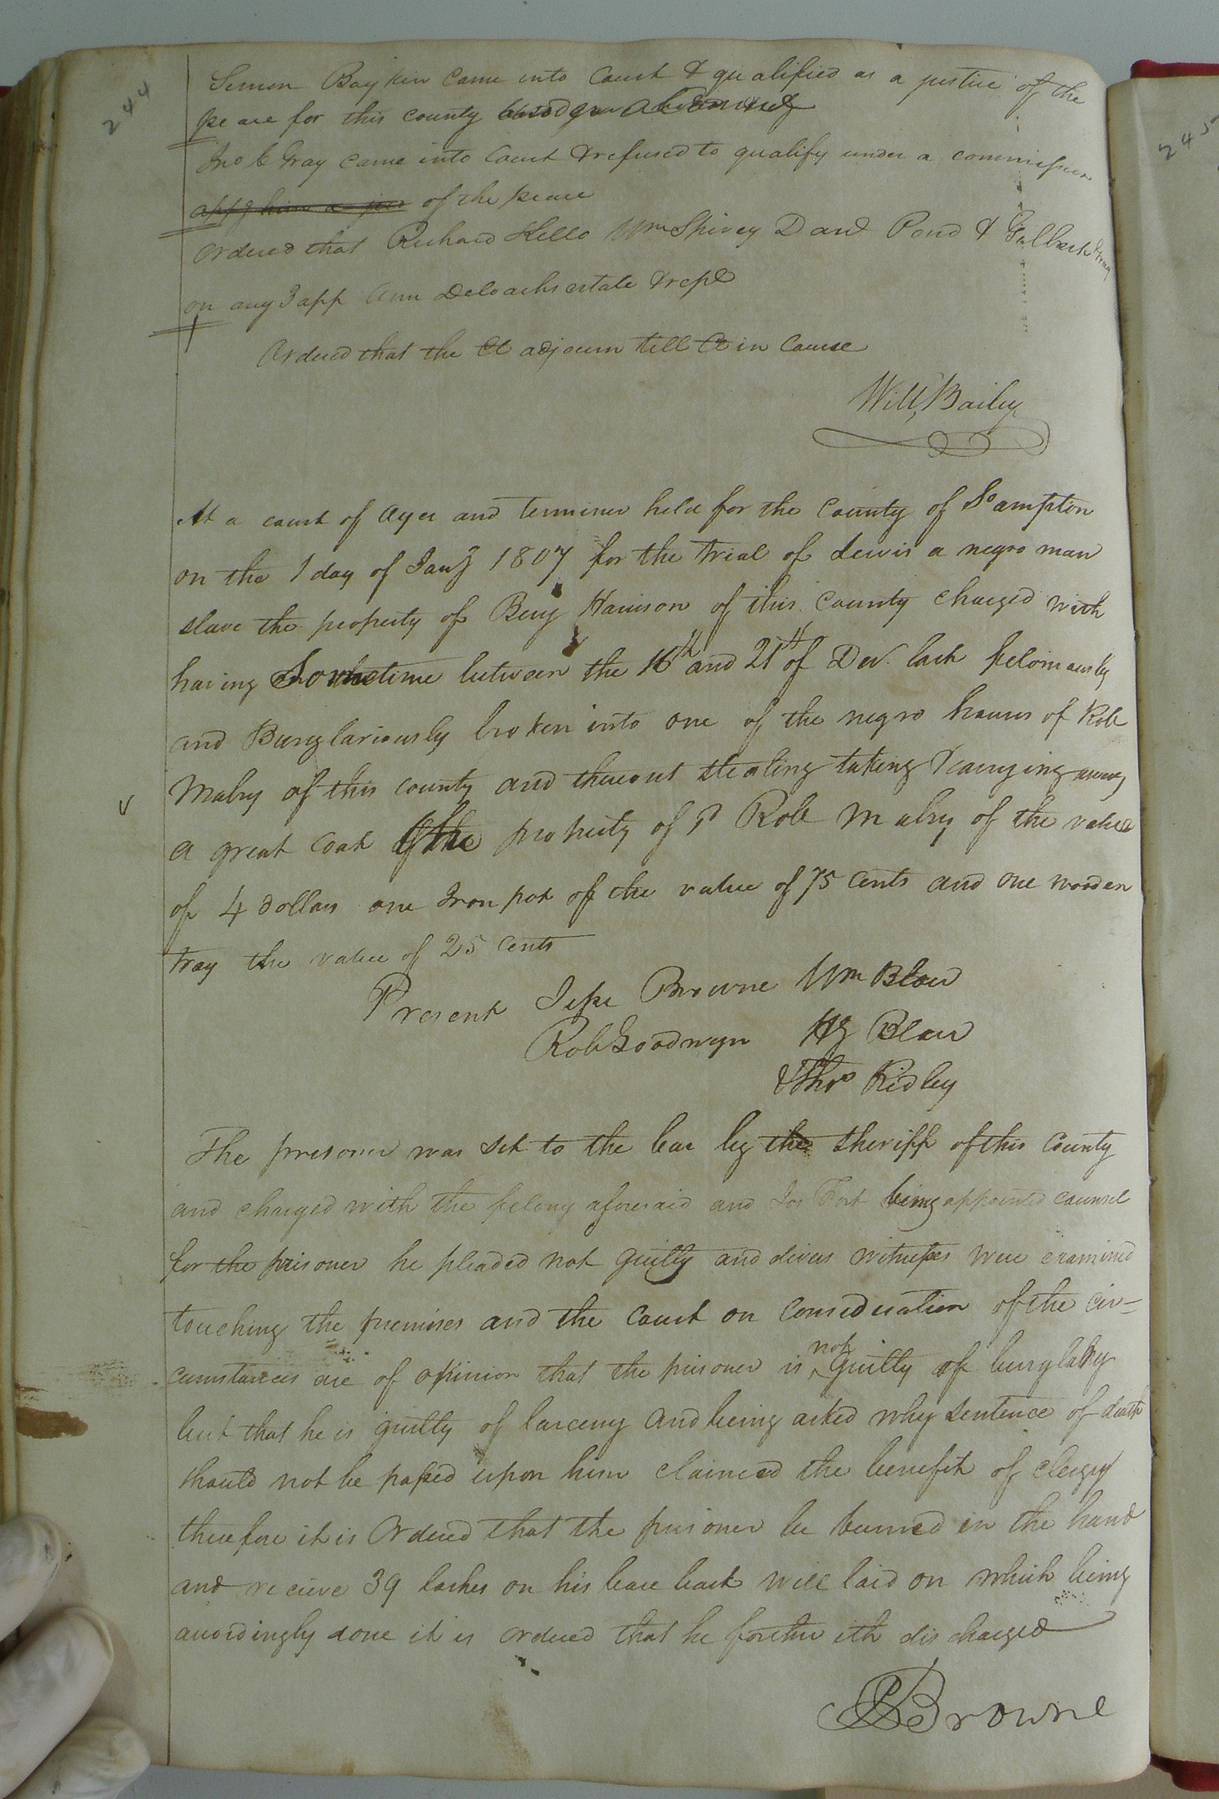 244
Simon Boykin came into Court & qualified as a justice of the
peace for this county
Jno C Gray came into Court & refused to qualify under a commission
of the peace
Ordered that Richard Kello Wm Spivey David Pond &
on any 3 app Ann Deloachs estate & rept
Ordered that the Ct adjourn till Ct in Course
Will, Bailey
At a court of Oyer and terminer held for the County of So ampton
on the 1 day of Jany 1807 for the trial of Lewis a negro man
slave the property of Benj Harrison of this County charged with
having Sometime between the 16th and 21st of Decr. last feloniously
and Burglariously broken into one of the negro houses of Rob
Mabry of this county and thereout stealing taking & carrying away
a great coat of the property of sd Rob Mabry of the value
of 4 dollars one Iron pot of the value of 75 cents and one wooden
tray the value of 25 cents
Present Jesse Browne Wm Blow
Rob Goodwyn Hy Blow
& Thos Ridley
The prisoner was set to the bar by the sheriff of this County
and charged with the felony aforesaid and Jos Fort being appointed counsel
for the prisoner he pleaded not guilty and divers witnesses were examined
touching the premises and the court on consideration of the cir-
cumstances are of opinion that the prisoner is not guilty of burglary
but that he is guilty of larceny and being asked why sentence of death
should not be passed upon him claimed the benefit of clergy
therefore it is Ordered that the prisoner be burned in the hand
and recieve 39 lashes on his bare back well laid on which being
accordingly done it is ordered that he forthwith discharged
Browne
245